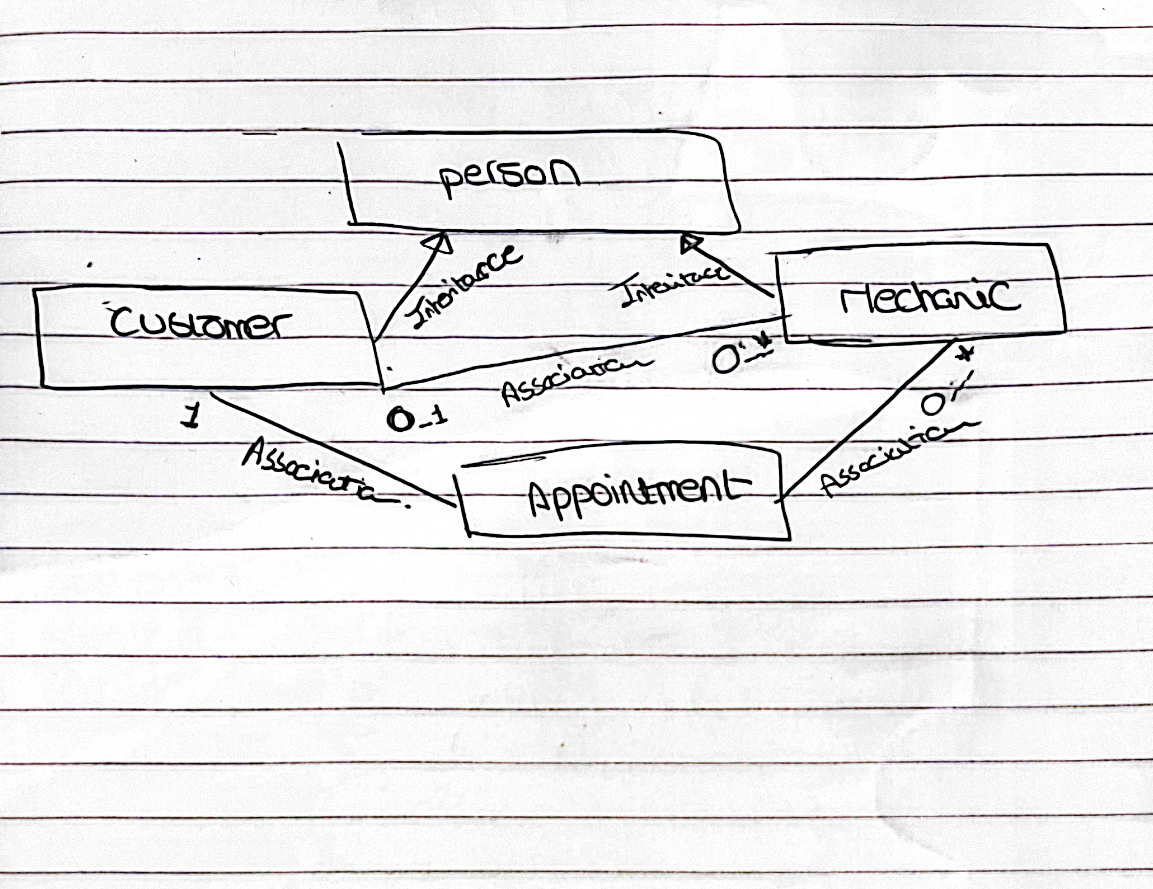 person
Inheritance
Inheritance
Customer
Mechanic
Association
0..*
1
0..1
0..*
Association
Association
Appointment